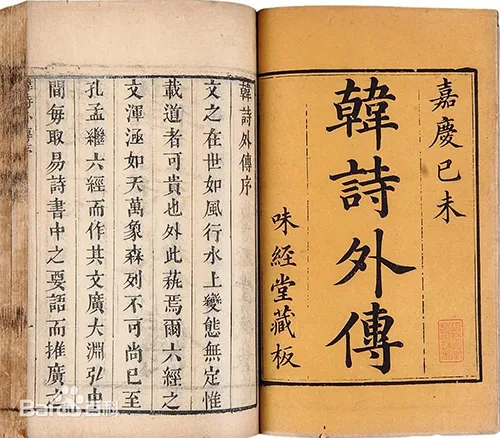 嘉慶己未
韓詩外傳
味經堂藏板
韓詩外傳序
文之在世如風行水上變態無定惟
載道者可貴也外此蓺焉爾六經之
文渾涵如天萬象森列不可尚已至
孔孟繼六經而作其文廣大淵弘中
間每取易詩書中之要語而推廣之
Baidu百科